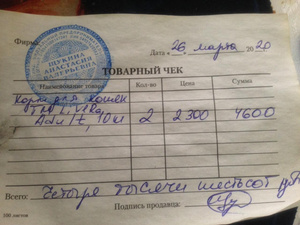 Фирма
ЩУКИНА
АНАСТАСИЯ
ВАЛЕРЬЕВНА
Дата « 26 марта 2020
ТОВАРНЫЙ ЧЕК
Наименование товара Кол-во Цена Сумма
Корм для кошек
Adult, 10кг 2 2300 4600
Всего: Четыре тысячи шестьсот руб
Подпись продавца:
100 листов